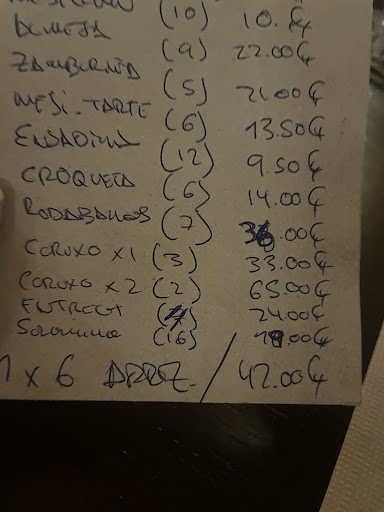 (10) 10.€
(9) 22.00€
ZAMBURIÑA (5) 21.00€
MESI. TARTE (6) 13.50€
(12) 9.50€
CROQUETA (6) 14.00€
RODABALLOS (7) 36.00€
CORUXO x1 (3) 33.00€
CORUXO x2 (2) 65.00€
ENTRECOT (4) 24.00€
Solomillo (16) 00€
1 x 6 ARROZ. / 42.00€